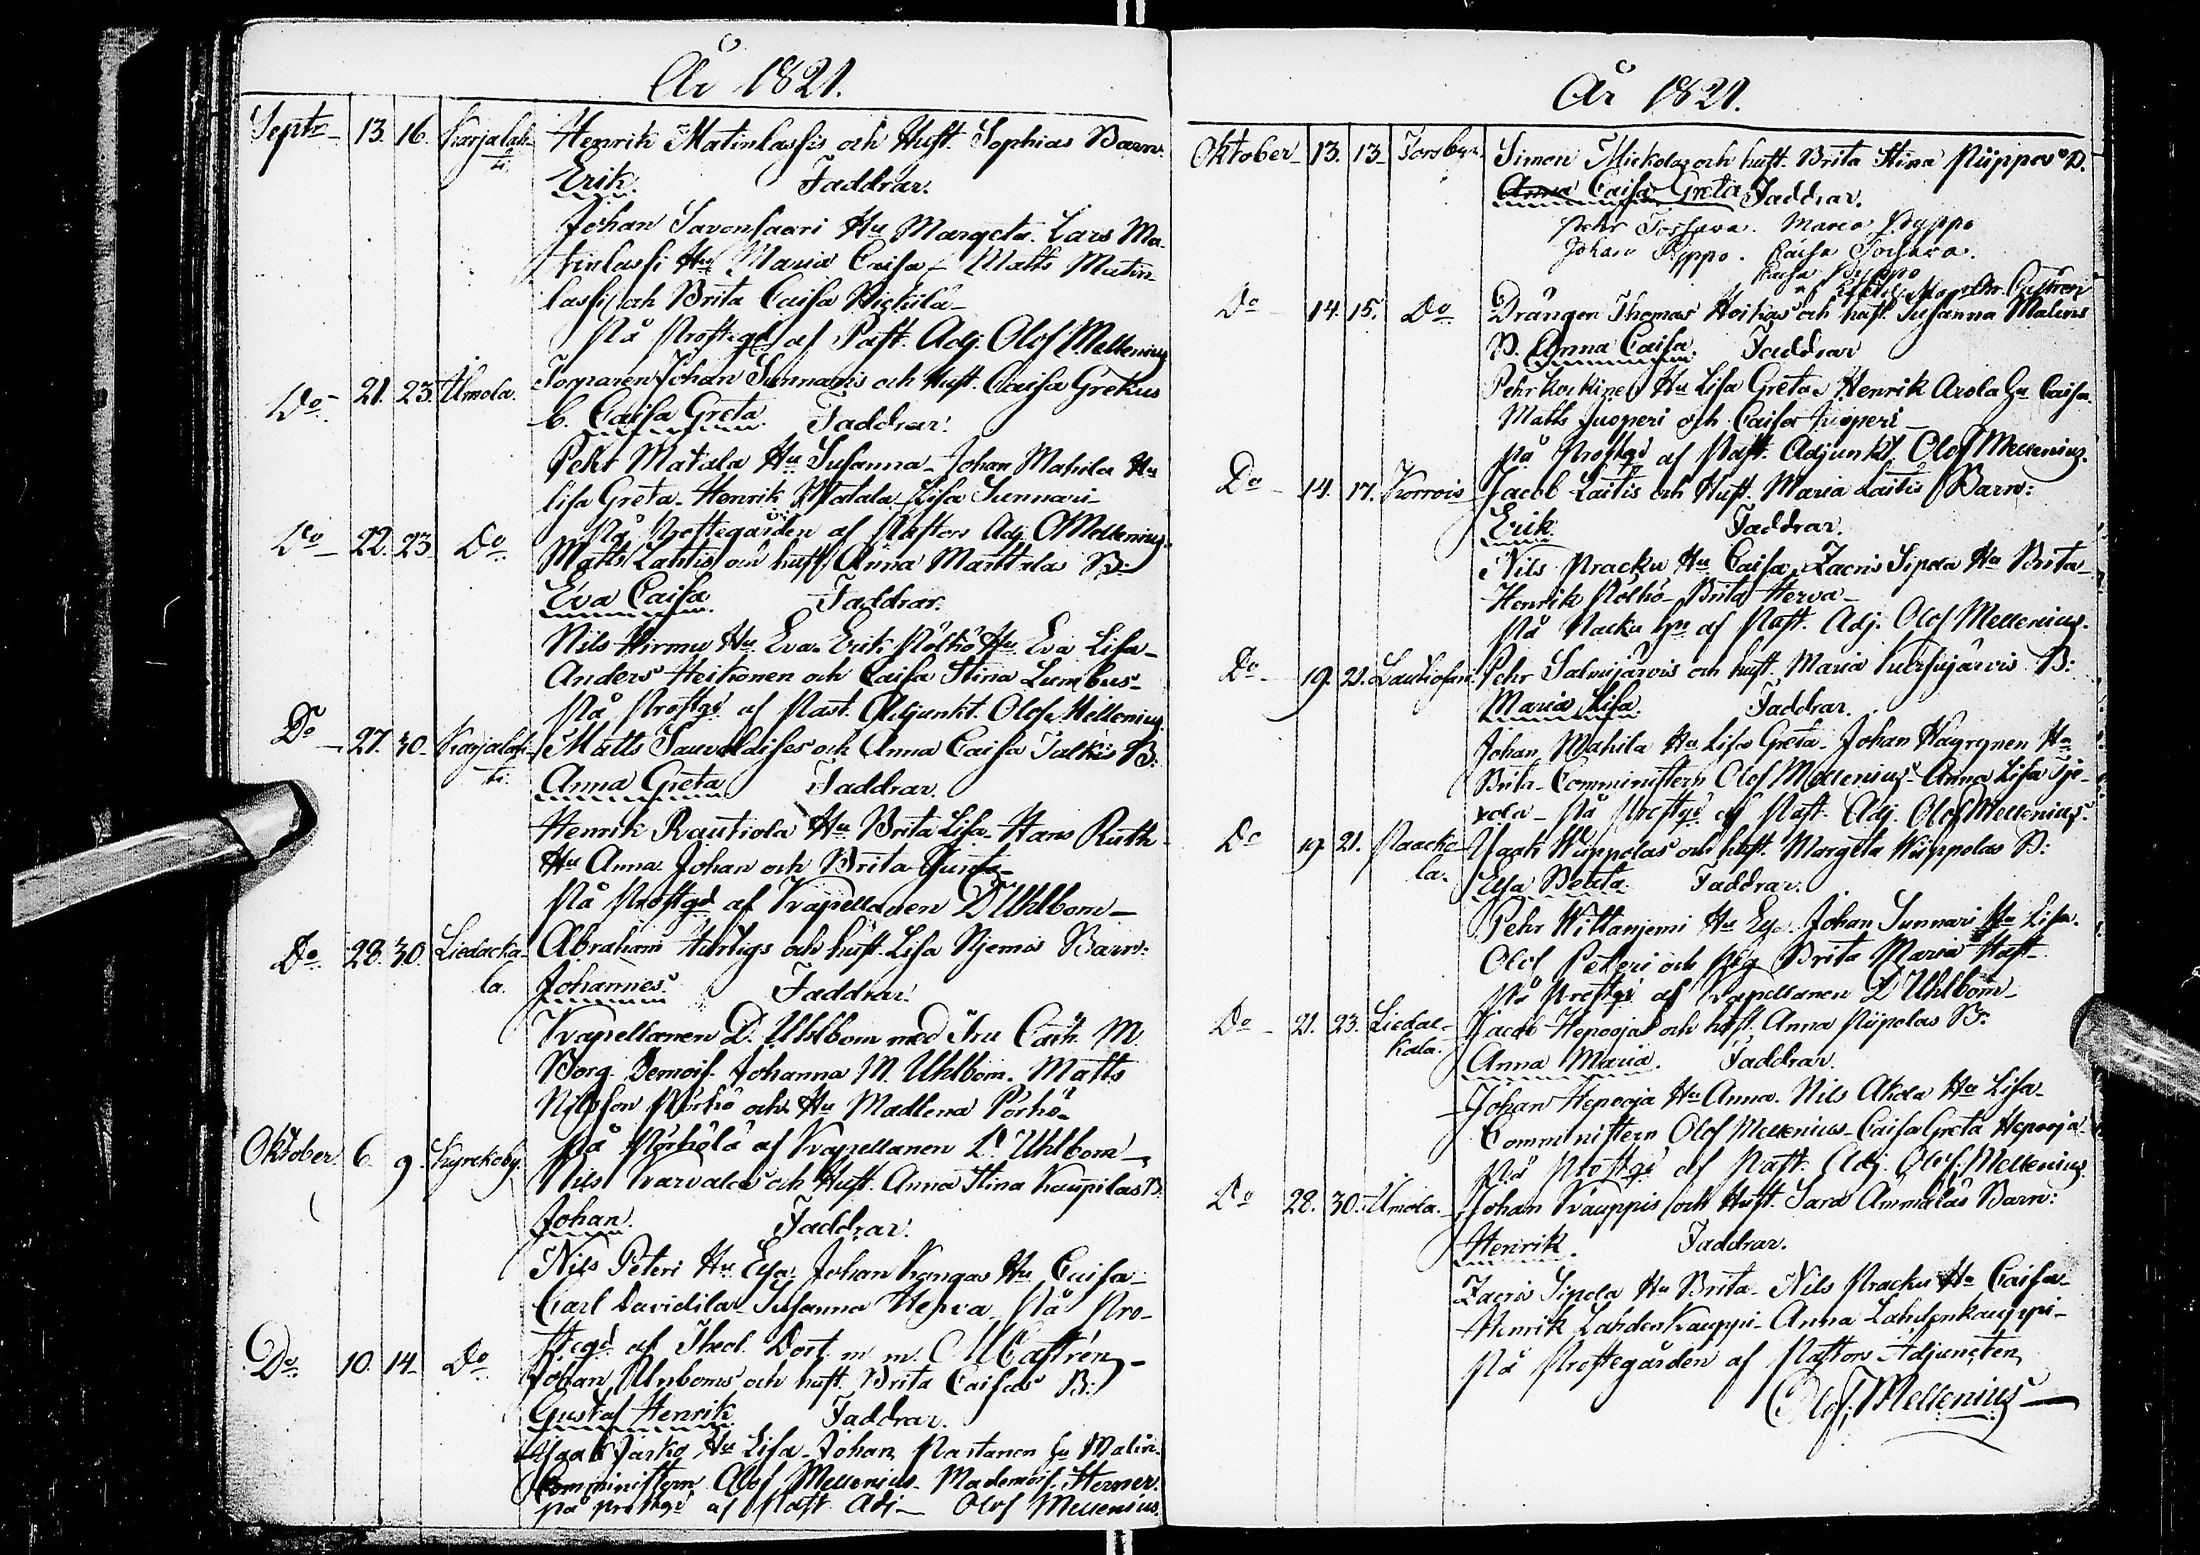 År 1821.
Septr 13. 16. Karjalah-
ti. Henrik Matinlassis och Hust. Sophias Barn
Erik. Faddrar.
Johan Savonsaari Hu Margeta. Lars Ma-
tinlassi Hu Maria Caisa - Matts Matin-
lassi och Brita Caisa
På Prostgd af Past. Adj. Olof Mellenius
Do 21. 23. Ümola. Torparen Johan Sunnaris och Hust. Caisa Gretas
b. Caisa Greta. Faddrar.
Pehr Matala Hu Susanna - Johan Mahila Hu
Lisa Greta - Henrik Matala - Lisa Sunnari -
På Prostegården af Pastors Adj. O Mellenius.
Do 22. 23 Do Matts Lahtis och hust. Anna Marttilas B:
Eva Caisa. Faddrar.
Nils Hirmu Hu Eva. Erik Pölkö Hu Eva Lisa -
Anders Heikonen och Caisa Stina Lumbus -
På Prostgd af Past. Adjunkt. Olof Mellenius
Do 27. 30. Karjalah-
ti. Matts och Anna Caisa Talkis B:
Anna Greta Faddrar.
Henrik Rautiola Hu Brita Lisa - Hans Ruth -
Hu Anna. Johan och Brita
På Prostgd af Kapellanen D Uhlbom -
Do 28. 30. Liedacka-
la. Abraham och hust. Lisa Niemis Barn:
Johannes. Faddrar.
Kapellanen D. Uhlbom med Fru Cath. M.
Borg. Demois. Johanna M. Uhlbom. Matts
Nilsson Pörhö och Hu Madlena Pörhö -
På Pörhölä af Kapellanen D. Uhlbom -
Oktober 6 9. Kyrckoby. Nils Karvalas och Hust. Anna Stina Kaupilas B.
Johan. Faddrar.
Nils Peteri Hu Eva. Johan Kangas Hu Caisa -
Carl Davidila - Susanna Herva. På Pro-
stegd af Theol. Doct. m. m. M Castrén -
Do 10. 14. Do Johan Unboms och hust. Brita Caisas B:
Gustaf Henrik. Faddrar.
Isaak Jarko Hu Lisa - Johan Partanen Hu Malin.
Comministern Olof Mellenius - Mademois. Herner.
på Prostgd af Past. Adj - Olof Mellenius.
År 1821.
Oktober 13. 13. Torsbyn. Simon Mickolas och hust. Brita Stina Piippos D.
Anna Caisa Greta Faddrar.
Pehr Toshava. Maria Pyppo
Johan Pyppo. Caisa Toshava.
Caisa Pyppo
Castrén
Do 14. 15. Do Drängen Thomas Hoikas och hust. Susanna Malins
D. Anna Caisa. Faddrar
Pehr Koskinen Hu Lisa Greta. Henrik Arola Hu Caisa.
Matts Juoperi och Caisa Juoperi -
på Prostgd af Past. Adjunkt. Olof Mellenius.
Do 14. 17. Korrois Jacob Laitis och Hust. Maria Laitis Barn:
Erik Faddrar.
Nils Pracku Hu Caisa. Zacris Sipola Hu Brita -
Henrik Pölkö - Brita Herva -
På Hu af Past. Adj. Olof Mellenius.
Do 19. 21. Lautiosari. Pehr Salmijärvis och hust. Maria B:
Maria Lisa. Faddrar.
Johan Mahila Hu Lisa Greta - Johan Häyrynen Hu
Brita - Comministern Olof Mellenius - Anna Lisa
På Prostgd af Past. Adj. Olof Mellenius.
Do 19. 21. Paacko-
la. Isaak Wuppolas och hust. Margeta Wuppolas D:
Eva Beata. Faddrar.
Pehr Wittaniemi Hu Eva. Johan Sunnari Hu Lisa.
Olof Peteri och Pig. Brita Maria
På Prostgd af Kapellanen D Uhlbom -
Do 21. 23. Liedac-
kala. Jacob Hepooja och hust. Anna Piipolas D:
Anna Maria. Faddrar.
Johan Hepooja Hu Anna. Nils Akola Hu Lisa -
Comministern Olof Mellenius - Caisa Greta Hepooja
På Prostgd af Past. Adj. Olof Mellenius.
Do 28. 30. Ümola. Johan Kauppis och Hust. Sara Ammalas Barn:
Henrik. Faddrar.
Zacris Sipola Hu Brita - Nils Pracku Hu Caisa -
Henrik Lahdenkauppi - Anna Lahdenkauppi -
På Prostegården af Pastors Adjuncten
Olof Mellenius -